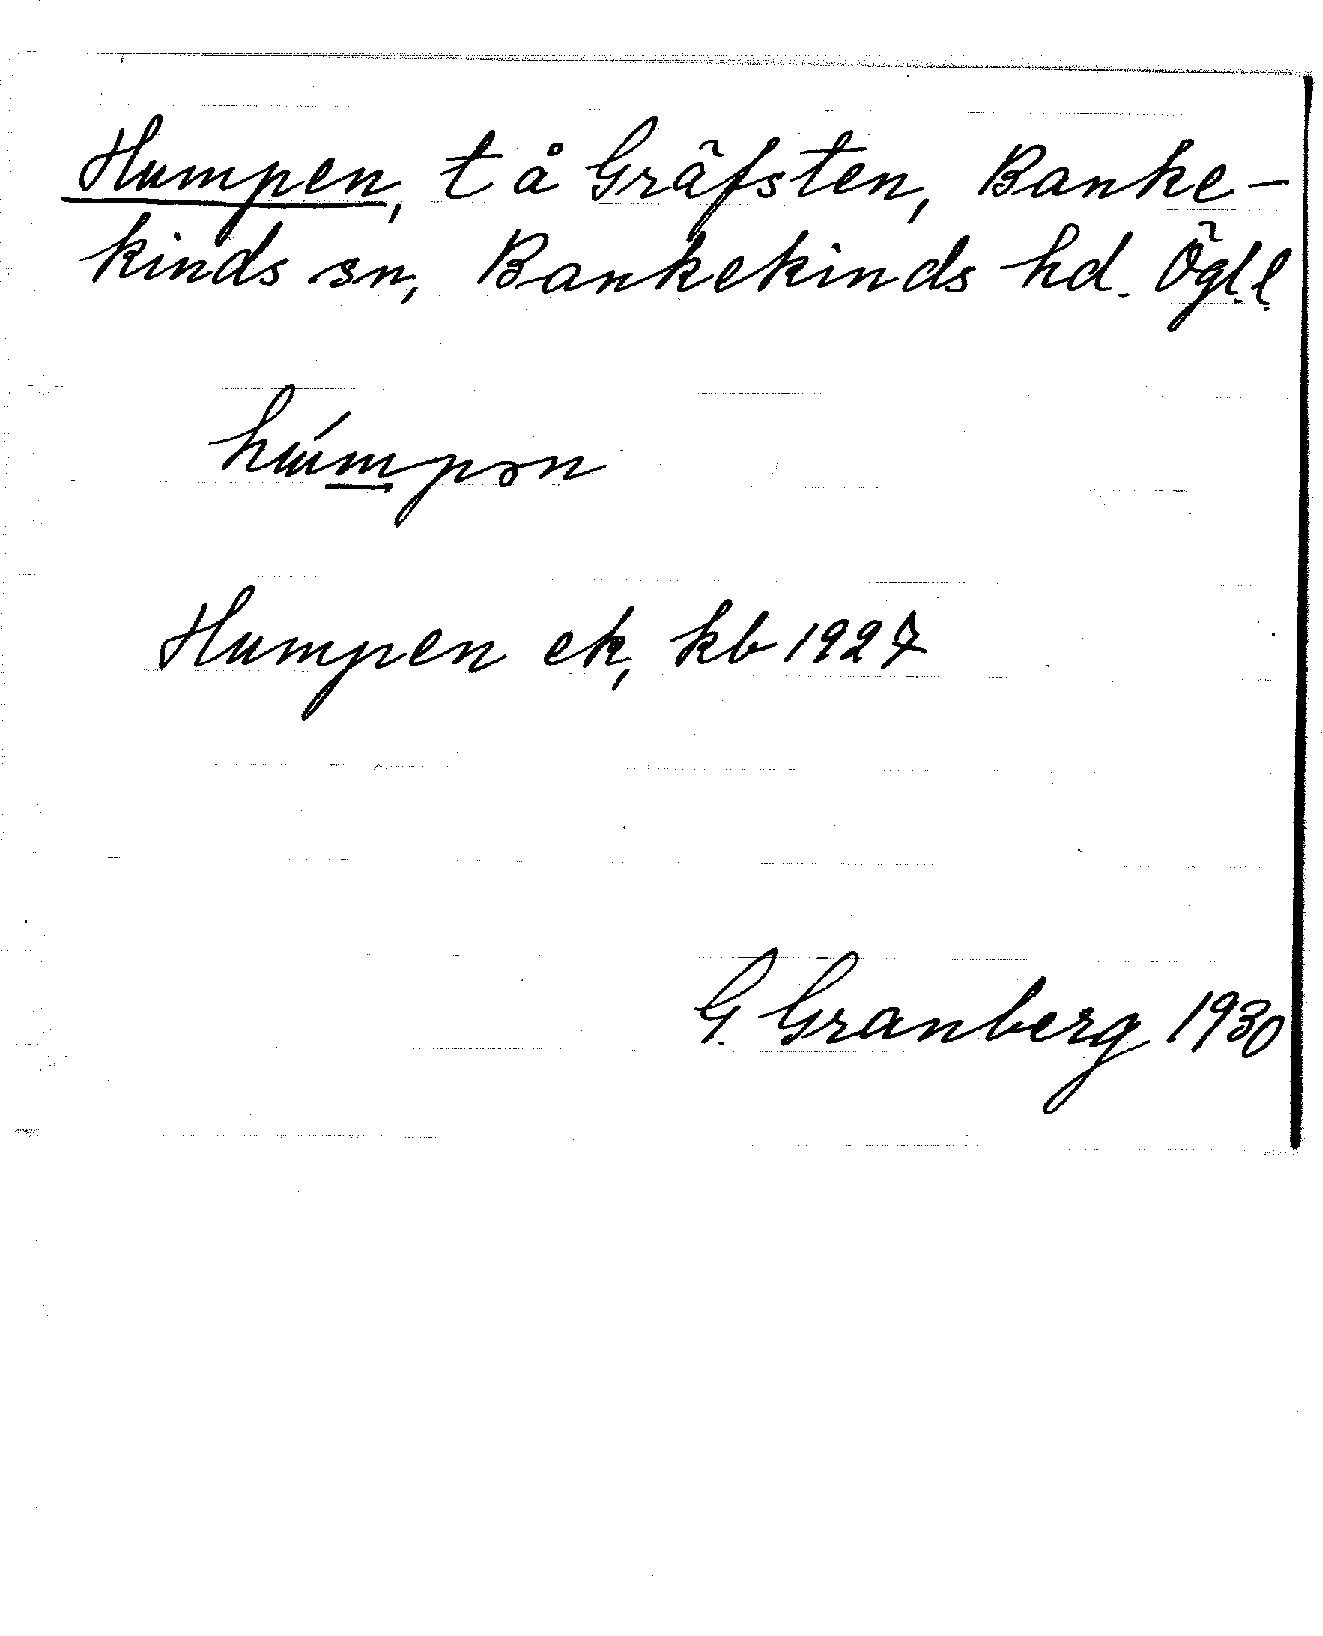 Humpen, t å Gräfsten, Banke-
kinds sn, Bankekinds hd. Ögl.l.
húmpən
Humpen ek, kb 1927
G. Granberg 1930